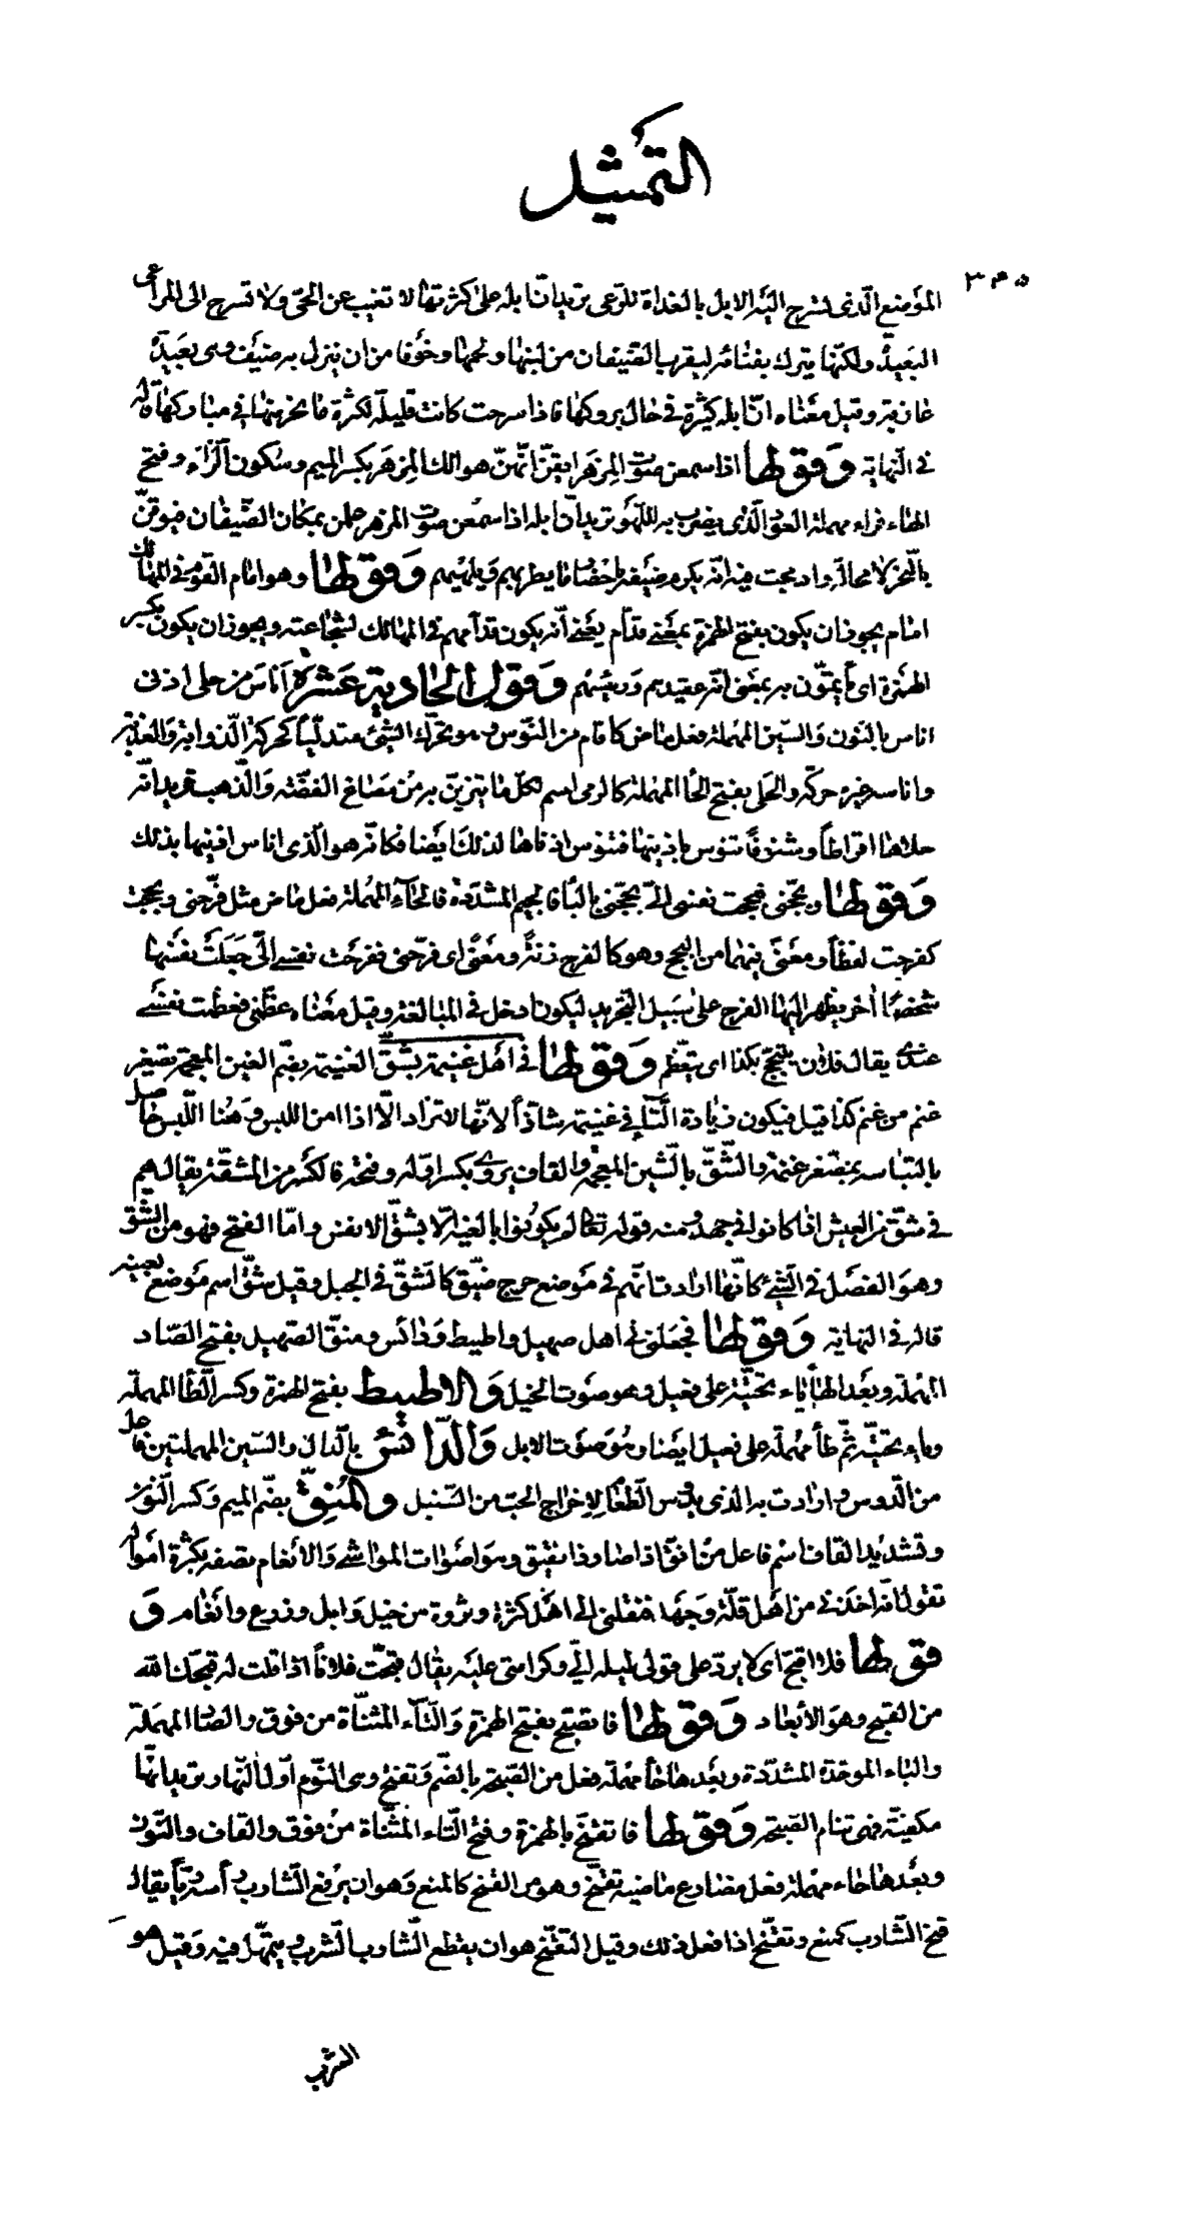 التمثيل
٣٣٥
الموضع الذى تسرح اليه الابل بالغداة للرّعى تريد انّ ابله على كثرتها لا تغيب عن الحىّ ولا تسرح الى المراعى
البعيدة ولكنّها يترك بفنائه ليقرب الضيفان من لبنها ولحمها وخوفا من ان ينزل به ضيف وهى بعيدة
عازبة وقيل معناه انّ ابله كثيرة فى حال بروكها فاذا سرحت كانت قليلة لكثرة ما نحر منها فى مباركها قاله
فى النّهاية وقولها اذا سمعن صوت المزهر ايقنّ انّهنّ هوالك المزهر بكسر الميم وسكون الزّاء وفتح
الهاء فراء مهملة العود الّذى يضرب به للّهو تريد انّ ابله اذا سمعن صوت المزهر علمن بمكان الضّيفان فيوقنّ
بالنّحر لا محالة وادمجت فيه انّه يكرم ضيفه باحضار ما يطربهم ويلهيهم وقولها وهو امام القوم فى المهالك
امام يجوز ان يكون بفتح الهمزة بمعنى قدّام يعنى انّه يكون قدّامهم فى المهالك لشجاعته ويجوز ان يكون بكسر
الهمزة اى يأتمّون به بمعنى انّه عقيدهم ورئيسهم وقول الحادية عشرة اناس من حلى اذنى
اناس بالنون والسّين المهملة فعل ماض كاقام من النّوس وهو تحرّك الشّئ متدلّيا كحركة الذّوابة والعذبة
واناسه غيره حرّكه والحلى بفتح الحاء المهملة كالرمى اسم لكلّ ما يتزيّن به من مصاغ الفضّة والذّهب تريد انّه
حلاها اقراطاً وشنوفاً تنوس باذنيها فتنوس اذناها لذلك ايضا فكانّه هو الّذى اناس اذنيها بذلك
وقولها وبجّحنى فبجحت نفسى الىّ بجّحنى بالباء فالجيم المشدّدة فالحاء المهملة فعل ماض مثل فرّحنى وبجحت
كفرحت لفظاً ومعنى فيهما من البجح وهو كالفرح زنة ومعنى اى فرّحنى ففرحت نفسى الىّ جعلت نفسها
شخصا اخر يظهر اليها الفرح على سبيل التّجريد ليكون ادخل فى المبالغة وقيل معناه عظّمنى فعظمت نفسى
عندى يقال فلان يتبجّح بكذا اى يتعظّم وقولها فى اهل غنيمة بشقّ الغنيمة بضمّ الغين المعجمة تصغير
غنم من غنم كذا قيل فيكون زيادة التّاء فى غنيمة شاذّاً لانّها لا تزاد الّا اذا امن اللبس وهنا اللّبس حاصل
بالتباسه بمصغر غنمة والشّقّ بالشّين المعجمة والقاف يروى بكسر اوّله وفتحه فالكسر من المشقّة يقال هم
فى شقّ من العيش اذا كانوا فى جهد ومنه قوله تعالى لم يكونوا بالغيه الّا بشقّ الانفس وامّا الفتح فهو من الشّقّ
وهو الفصل فى الشّئ كانّها ارادت انّهم فى موضع حرج ضيّق كالشّقّ فى الجبل وقيل شقّ اسم موضع بعينه
قاله فى النهاية وقولها فجعلنى فى اهل صهيل واطيط ودائس ومنقّ الصّهيل بفتح الصّاد
المهملة وبعد الهاء ياء تحتيّة على فعيل وهو صوت الخيل والاطيط بفتح الهمزة وكسر الطّاء المهملة
وياء تحتيّة ثمّ طاء مهملة على فعيل ايضا وهو صوت الابل والدّائس بالدّال والسّين المهملتين فاعل
من الدّوس وارادت به الذى يدوس الطّعام لاخراج الحبّ من السّنبل والمُنِقّ بضمّ الميم وكسر النّون
وتشديد القاف اسم فاعل من انقّ اذا صار ذا نقيق وهو اصوات المواشى والانعام تصفه بكثرة امواله
تقول انّه اخذنى من اهل قلّة وجهد فنقلنى الى اهل كثرة وثروة من خيل وابل وزرع وانعام و
قولها فلا اقبّح اى لا يردّ على قولى لميله الىّ وكرامتى عليه يقال قبّحت فلاناً اذا قلت له قبحك اللّه
من القبح وهو الابعاد وقولها فاتصبّح بفتح الهمزة والتّاء المثنّاة من فوق والصاد المهملة
والباء الموحّدة المشدّدة وبعدها حاء مهملة فعل من الصّبحة بالضّمّ وتفتح وهى النّوم اوّل النّهار تريد انّها
مكفيّة فهى تنام الصّبحة وقولها فاتقنّح بالهمزة وفتح التّاء المثنّاة من فوق والقاف والنّون
وبعدها حاء مهملة فعل مضارع ماضيه تقنّح وهو من القنح كالمنع وهو ان يرفع الشّارب رأسه ريّاً يقال
قنح الشّارب كمنع وتقنّح اذا فعل ذلك وقيل التّقنّح هو ان يقطع الشّارب الشّرب ويتمهّل فيه وقيل هو
الشرب